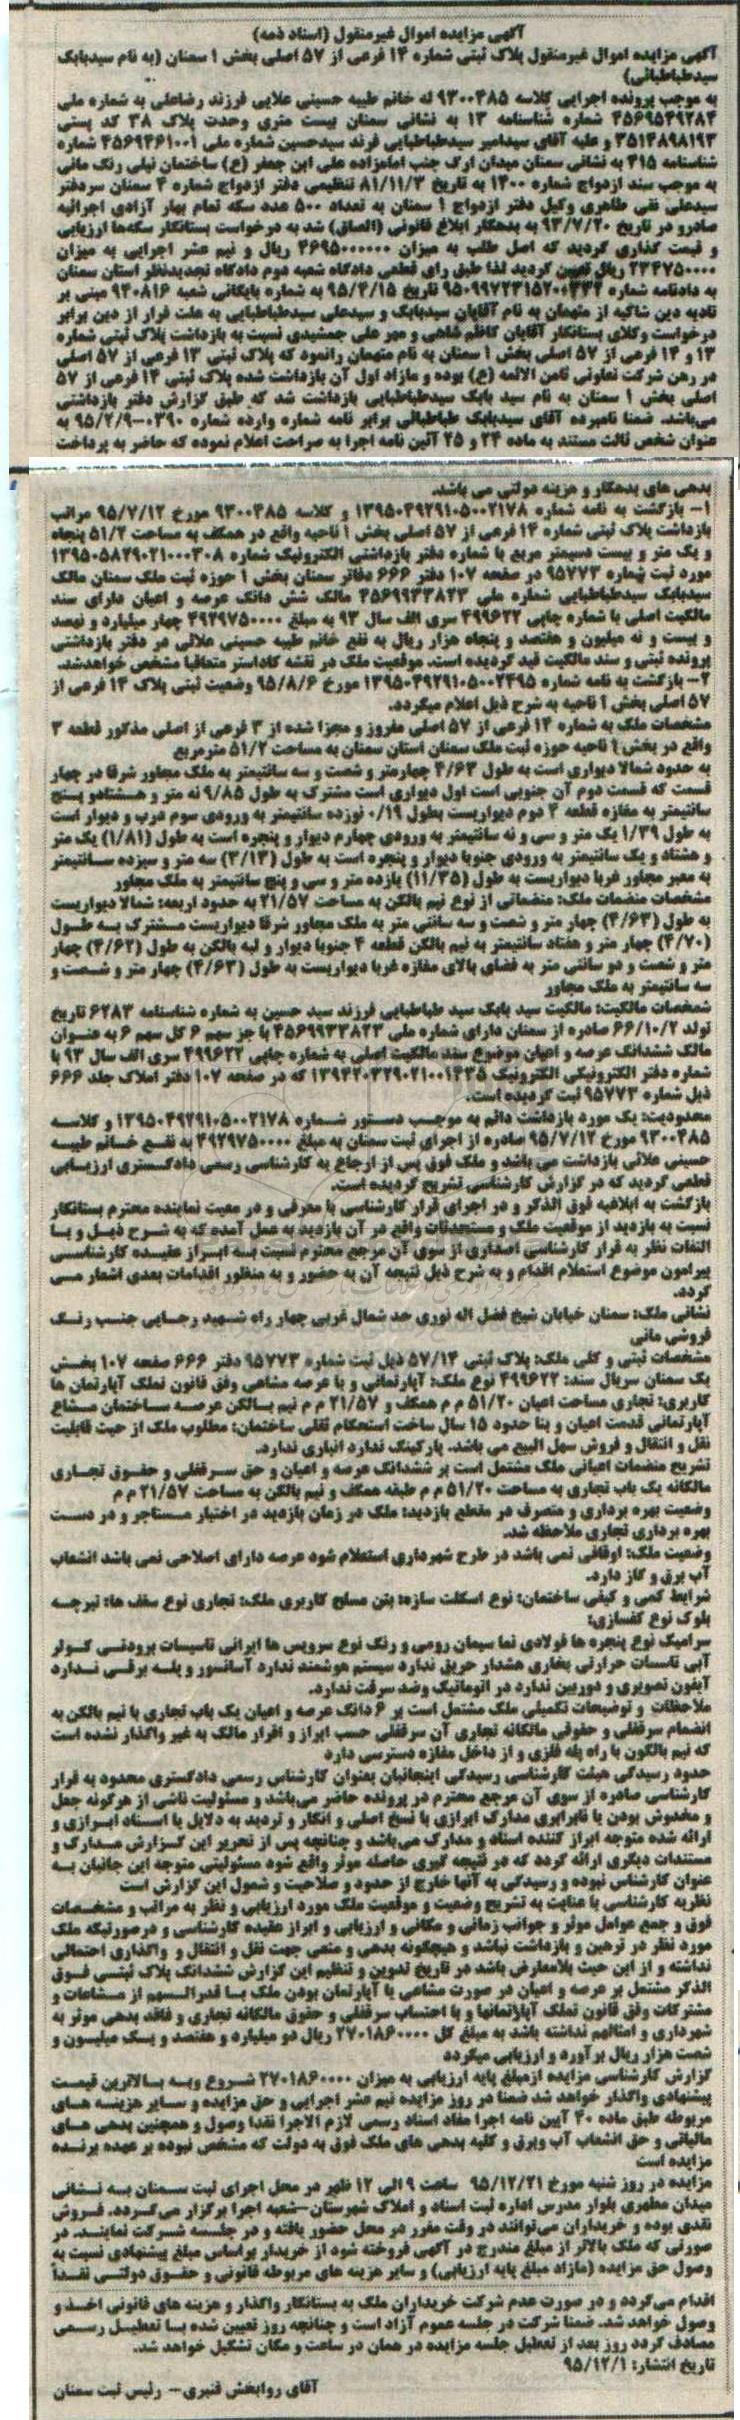 آگهی مزایده اموال غیرمنقول (اسناد ذمه)
آگهی مزایده اموال غیرمنقول پلاک ثبتی شماره ۱۴ فرعی از ۵۷ اصلی بخش ۱ سمنان (به نام سیدبابک
سیدطباطبائی)
به موجب پرونده اجرایی کلاسه ۹۳۰۰۴۸۵ له خانم طیبه حسینی علایی فرزند رضاعلی به شماره ملی
۴۵۶۹۵۴۹۲۸۴ شماره شناسنامه ۱۳ به نشانی سمنان بیست متری وحدت پلاک ۳۸ کد پستی
۳۵۱۴۸۹۸۱۹۳ و علیه آقای سیدامیر سیدطباطبایی فرند سیدحسین شماره ملی ۴۵۶۹۴۶۱۰۰۱ شماره
شناسنامه ۴۱۵ به نشانی سمنان میدان ارک جنب امامزاده علی ابن جعفر (ع) ساختمان نیلی رنگ مانی
به موجب سند ازدواج شماره ۱۴۰۰ به تاریخ ۸۱/۱۱/۳ تنظیمی دفتر ازدواج شماره ۴ سمنان سردفتر
سیدعلی نقی طاهری وکیل دفتر ازدواج ۱ سمنان به تعداد ۵۰۰ عدد سکه تمام بهار آزادی اجرائیه
صادرو در تاریخ ۹۳/۷/۲۰ به بدهکار ابلاغ قانونی (الصاق) شد به درخواست بستانکار سکه‌ها ارزیابی
و قیمت گذاری گردید که اصل طلب به میزان ۴۶۹۵۰۰۰۰۰۰ ریال و نیم عشر اجرایی به میزان
۲۳۴۷۵۰۰۰۰ ریال تعیین گردید لذا طبق رای قطعی دادگاه شعبه دوم دادگاه تجدیدنظر استان سمنان
به دادنامه شماره تاریخ ۹۵/۴/۱۵ به شماره بایگانی شعبه ۹۴۰۸۱۶ مبنی بر
تادیه دین شاکیه از متهمان به نام آقایان سیدبابک و سیدعلی سیدطباطبایی به علت فرار از دین برابر
درخواست وکلای بستانکار آقایان کاظم شاهی و مهر علی جمشیدی نسبت به بازداشت پلاک ثبتی شماره
۱۳ و ۱۴ فرعی از ۵۷ اصلی بخش ۱ سمنان به نام متهمان رانمود که پلاک ثبتی ۱۳ فرعی از ۵۷ اصلی
در رهن شرکت تعاونی ثامن الائمه (ع) بوده و مازاد اول آن بازداشت شده پلاک ثبتی ۱۴ فرعی از ۵۷
اصلی بخش ۱ سمنان به نام سید بابک سیدطباطبایی بازداشت شد که طبق گزارش دفتر بازداشتی
می‌باشد. ضمنا نامبرده آقای سیدبابک طباطبائی برابر نامه شماره وارده شماره ۰۳۹۰-۹۵/۲/۹ به
عنوان شخص ثالث مستند به ماده ۲۴ و ۲۵ آئین نامه اجرا به صراحت اعلام نموده که حاضر به پرداخت
بدهی های بدهکار و هزینه دولتی می باشد.
۱- بازگشت به نامه شماره ۱۳۹۵۰۴۹۲۹۱۰۵۰۰۲۱۷۸ و کلاسه ۹۳۰۰۴۸۵ مورخ ۹۵/۷/۱۲ مراتب
بازداشت پلاک ثبتی شماره ۱۴ فرعی از ۵۷ اصلی بخش ۱ ناحیه واقع در همکف به مساحت ۵۱/۲ پنجاه
و یک متر و بیست دسیمتر مربع با شماره دفتر بازداشتی الکترونیک شماره ۱۳۹۵۰۵۸۲۹۰۲۱۰۰۰۳۰۸
مورد ثبت شماره ۹۵۷۷۳ در صفحه ۱۰۷ دفتر ۶۶۶ دفاتر سمنان بخش ۱ حوزه ثبت ملک سمنان مالک
سیدبابک سیدطباطبایی شماره ملی ۴۵۶۹۹۳۳۸۲۳ مالک شش دانگ عرصه و اعیان دارای سند
مالکیت اصلی با شماره چاپی ۴۹۹۶۲۲ سری الف سال ۹۳ به مبلغ ۴۹۲۹۷۵۰۰۰۰ چهار میلیارد و نهصد
و بیست و نه میلیون و هفتصد و پنجاه هزار ریال به نفع خانم طیبه حسینی علائی در دفتر بازداشتی
پرونده ثبتی و سند مالکیت قید گردیده است. موقعیت ملک در نقشه کاداستر متعاقبا مشخص خواهدشد.
۲- بازگشت به نامه شماره ۱۳۹۵۰۴۹۲۹۱۰۵۰۰۲۴۹۵ مورخ ۹۵/۸/۶ وضعیت ثبتی پلاک ۱۴ فرعی از
۵۷ اصلی بخش ۱ ناحیه به شرح ذیل اعلام میگردد.
مشخصات ملک به شماره ۱۴ فرعی از ۵۷ اصلی مفروز و مجزا شده از ۳ فرعی از اصلی مذکور قطعه ۳
واقع در بخش ۱ ناحیه حوزه ثبت ملک سمنان استان سمنان به مساحت ۵۱/۲ مترمربع
به حدود شمالا دیواری است به طول ۴/۶۳ چهارمتر و شصت و سه سانتیمتر به ملک مجاور شرقا در چهار
قسمت که قسمت دوم آن جنوبی است اول دیواری است مشترک به طول ۹/۸۵ نه متر و هشتادو پنج
سانتیمتر به مغازه قطعه ۴ دوم دیواریست بطول ۰/۱۹ نوزده سانتیمتر به ورودی سوم درب و دیوار است
به طول ۱/۳۹ یک متر و سی و نه سانتیمتر به ورودی چهارم دیوار و پنجره است به طول (۱/۸۱) یک متر
و هشتاد و یک سانتیمتر به ورودی جنوبا دیوار و پنجره است به طول (۳/۱۳) سه متر و سیزده سانتیمتر
به معبر مجاور غربا دیواریست به طول (۱۱/۳۵) یازده متر و سی و پنج سانتیمتر به ملک مجاور
مشخصات منضمات ملک: منضماتی از نوع نیم بالکن به مساحت ۲۱/۵۷ به حدود اربعه: شمالا دیواریست
به طول (۴/۶۳) چهار متر و شصت و سه سانتی متر به ملک مجاور شرقا دیواریست مشترک به طول
(۴/۷۰) چهار متر و هفتاد سانتیمتر به نیم بالکن قطعه ۴ جنوبا دیوار و لبه بالکن به طول (۴/۶۲) چهار
متر و شصت و دو سانتی متر به فضای بالای مغازه غربا دیواریست به طول (۴/۶۳) چهار متر و شصت و
سه سانتیمتر به ملک مجاور
شمخصات مالکیت: مالکیت سید بابک سید طباطبایی فرزند سید حسین به شماره شناسنامه ۶۲۸۳ تاریخ
تولد ۶۶/۱۰/۲ صادره از سمنان دارای شماره ملی ۴۵۶۹۹۳۳۸۲۳ با جز سهم ۶ کل سهم ۶ به عنوان
مالک ششدانگ عرصه و اعیان موضوع سند مالکیت اصلی به شماره چاپی ۴۹۹۶۲۲ سری الف سال ۹۳ با
شماره دفتر الکترونیکی الکترونیک ۱۳۹۴۲۰۳۲۹۰۲۱۰۰۱۴۳۵ که در صفحه ۱۰۷ دفتر املاک جلد ۶۶۶
ذیل شماره ۹۵۷۷۳ ثبت گردیده است.
محدودیت: یک مورد بازداشت دائم به موجب دستور شماره ۱۳۹۵۰۴۹۲۹۱۰۵۰۰۲۱۷۸ و کلاسه
۹۳۰۰۴۸۵ مورخ ۹۵/۷/۱۲ صادره از اجرای ثبت سمنان به مبلغ ۴۹۲۹۷۵۰۰۰۰ به نفع خانم طیبه
حسینی علائی بازداشت می باشد و ملک فوق پس از ارجاع به کارشناسی رسمی دادگستری ارزیابی
قطعی گردید که در گزارش کارشناسی تشریح گردیده است.
بازگشت به ابلاغیه فوق الذکر و در اجرای قرار کارشناسی با معرفی و در معیت نماینده محترم بستانکار
نسبت به بازدید از موقعیت ملک و مستحدثات واقع در آن بازدید به عمل آمده که به شرح ذیل و با
التفات نظر به قرار کارشناسی اصداری از سوی آن مرجع محترم نسبت به ابراز عقیده کارشناسی
پیرامون موضوع استعلام اقدام و به شرح ذیل نتیجه آن به حضور و به منظور اقدامات بعدی اشعار می
گردد.
نشانی ملک: سمنان خیابان شیخ فضل اله نوری حد شمال غربی چهار راه شهید رجایی جنب رنگ
فروشی مانی
مشخصات ثبتی و کلی ملک: پلاک ثبتی ۵۷/۱۴ ذیل ثبت شماره ۹۵۷۷۳ دفتر ۶۶۶ صفحه ۱۰۷ بخش
یک سمنان سریال سند: ۴۹۹۶۲۲ نوع ملک: آپارتمانی و با عرصه مشاعی وفق قانون تملک آپارتمان ها
کاربری: تجاری مساحت اعیان ۵۱/۲۰ م م همکف و ۲۱/۵۷ م م نیم بالکن عرصه ساختمان مشاع
آپارتمانی قدمت اعیان و بنا حدود ۱۵ سال ساخت استحکام ثقلی ساختمان: مطلوب ملک از حیث قابلیت
نقل و انتقال و فروش سهل البیع می باشد. پارکینگ ندارد انباری ندارد.
تشریح منضمات اعیانی ملک مشتمل است بر ششدانگ عرصه و اعیان و حق سرقفلی و حقوق تجاری
مالکانه یک باب تجاری به مساحت ۵۱/۲۰ م م طبقه همکف و نیم بالکن به مساحت ۲۱/۵۷ م م
وضعیت بهره برداری و متصرف در مقطع بازدید: ملک در زمان بازدید در اختیار مستاجر و در دست
بهره برداری تجاری ملاحظه شد.
وضعیت ملک: اوقافی نمی باشد در طرح شهرداری استعلام شود عرصه دارای اصلاحی نمی باشد انشعاب
آب برق و گاز دارد.
شرایط کمی و کیفی ساختمان: نوع اسکلت سازه: بتن مسلح کاربری ملک: تجاری نوع سقف ها: تیرچه
بلوک نوع کفسازی:
سرامیک نوع پنجره ها فولادی نما سیمان رومی و رنگ نوع سرویس ها ایرانی تاسیسات برودتی کولر
آبی تاسسات حرارتی بخاری هشدار حریق ندارد سیستم هوشمند ندارد آسانسور و پله برقی ندارد
آیفون تصویری و دوربین ندارد در اتوماتیک وضد سرقت ندارد.
ملاحظات و توضیحات تکمیلی ملک مشتمل است بر ۶ دانگ عرصه و اعیان یک باب تجاری با نیم بالکن به
انضمام سرقفلی و حقوقی مالکانه تجاری آن سرقفلی حسب ابراز و اقرار مالک به غیر واگذار نشده است
که نیم بالکون با راه پله فلزی و از داخل مغازه دسترسی دارد
حدود رسیدگی هیئت کارشناسی رسیدگی اینجانبان بعنوان کارشناس رسمی دادگستری محدود به قرار
کارشناسی صادره از سوی آن مرجع محترم در پرونده حاضر می‌باشد و مسئولیت ناشی از هرگونه جعل
و مخدوش بودن یا نابرابری مدارک ابرازی با نسخ اصلی و انکار و تردید به دلایل یا اسناد ابرازی و
ارائه شده متوجه ابراز کننده اسناد و مدارک می‌باشد و چنانچه پس از تحریر این گزارش مدارک و
مستندات دیگری ارائه گردد که در نتیجه گیری حاصله موثر واقع شود مسئولیتی متوجه این جانبان به
عنوان کارشناس نبوده و رسیدگی به آنها خارج از حدود و صلاحیت و شمول این گزارش است
نظریه کارشناسی با عنایت به تشریح وضعیت و موقعیت ملک مورد ارزیابی و نظر به مراتب و مشخصات
فوق و جمع عوامل موثر و جوانب زمانی و مکانی و ارزیابی و ابراز عقیده کارشناسی و درصورتیکه ملک
مورد نظر در ترهین و بازداشت نباشد و هیچگونه بدهی و منعی جهت نقل و انتقال و واگذاری احتمالی
نداشته و از این حیث بلامعارض باشد در تاریخ تدوین و تنظیم این گزارش ششدانگ پلاک ثبتی فوق
الذکر مشتمل بر عرصه و اعیان در صورت مشاعی یا آپارتمان بودن ملک با قدرالسهم از مشاعات و
مشترکات وفق قانون تملک آپارتمانها و با احتساب سرقفلی و حقوق مالکانه تجاری و فاقد بدهی موثر به
شهرداری و امثالهم نداشته باشد به مبلغ کل ۲۷۰۱۸۶۰۰۰۰ ریال دو میلیارد و هفتصد و یک میلیون و
شصت هزار ریال برآورد و ارزیابی میگردد
گزارش کارشناسی مزایده ازمبلغ پایه ارزیابی به میزان ۲۷۰۱۸۶۰۰۰۰ شروع وبه بالاترین قیمت
پیشنهادی واگذار خواهد شد ضمنا در روز مزایده نیم عشر اجرایی و حق مزایده و سایر هزینه های
مربوطه طبق ماده ۴۰ آیین نامه اجرا مفاد اسناد رسمی لازم الاجرا نقدا وصول و همچنین بدهی های
مالیاتی و حق انشعاب آب وبرق و کلیه بدهی های ملک فوق به دولت که مشخص نبوده بر عهده برنده
مزایده است
مزایده در روز شنبه مورخ ۹۵/۱۲/۲۱ ساعت ۹ الی ۱۲ ظهر در محل اجرای ثبت سمنان به نشانی
میدان مطهری بلوار مدرس اداره ثبت اسناد و املاک شهرستان-شعبه اجرا برگزار می‌گردد. فروش
نقدی بوده و خریداران می‌توانند در وقت مقرر در محل حضور یافته و در جلسه شرکت نمایند. در
صورتی که ملک بالاتر از مبلغ مندرج در آگهی فروخته شود از خریدار براساس مبلغ پیشنهادی نسبت به
وصول حق مزایده (مازاد مبلغ پایه ارزیابی) و سایر هزینه های مربوطه قانونی و حقوق دولتی نقداً
اقدام می‌گردد و در صورت عدم شرکت خریداران ملک به بستانکار واگذار و هزینه های قانونی اخذ و
وصول خواهد شد. ضمنا شرکت در جلسه عموم آزاد است و چنانچه روز تعیین شده با تعطیل رسمی
مصادف گردد روز بعد از تعطیل جلسه مزایده در همان در ساعت و مکان تشکیل خواهد شد.
تاریخ انتشار: ۹۵/۱۲/۱
آقای روابخش قنبری- رئیس ثبت سمنان